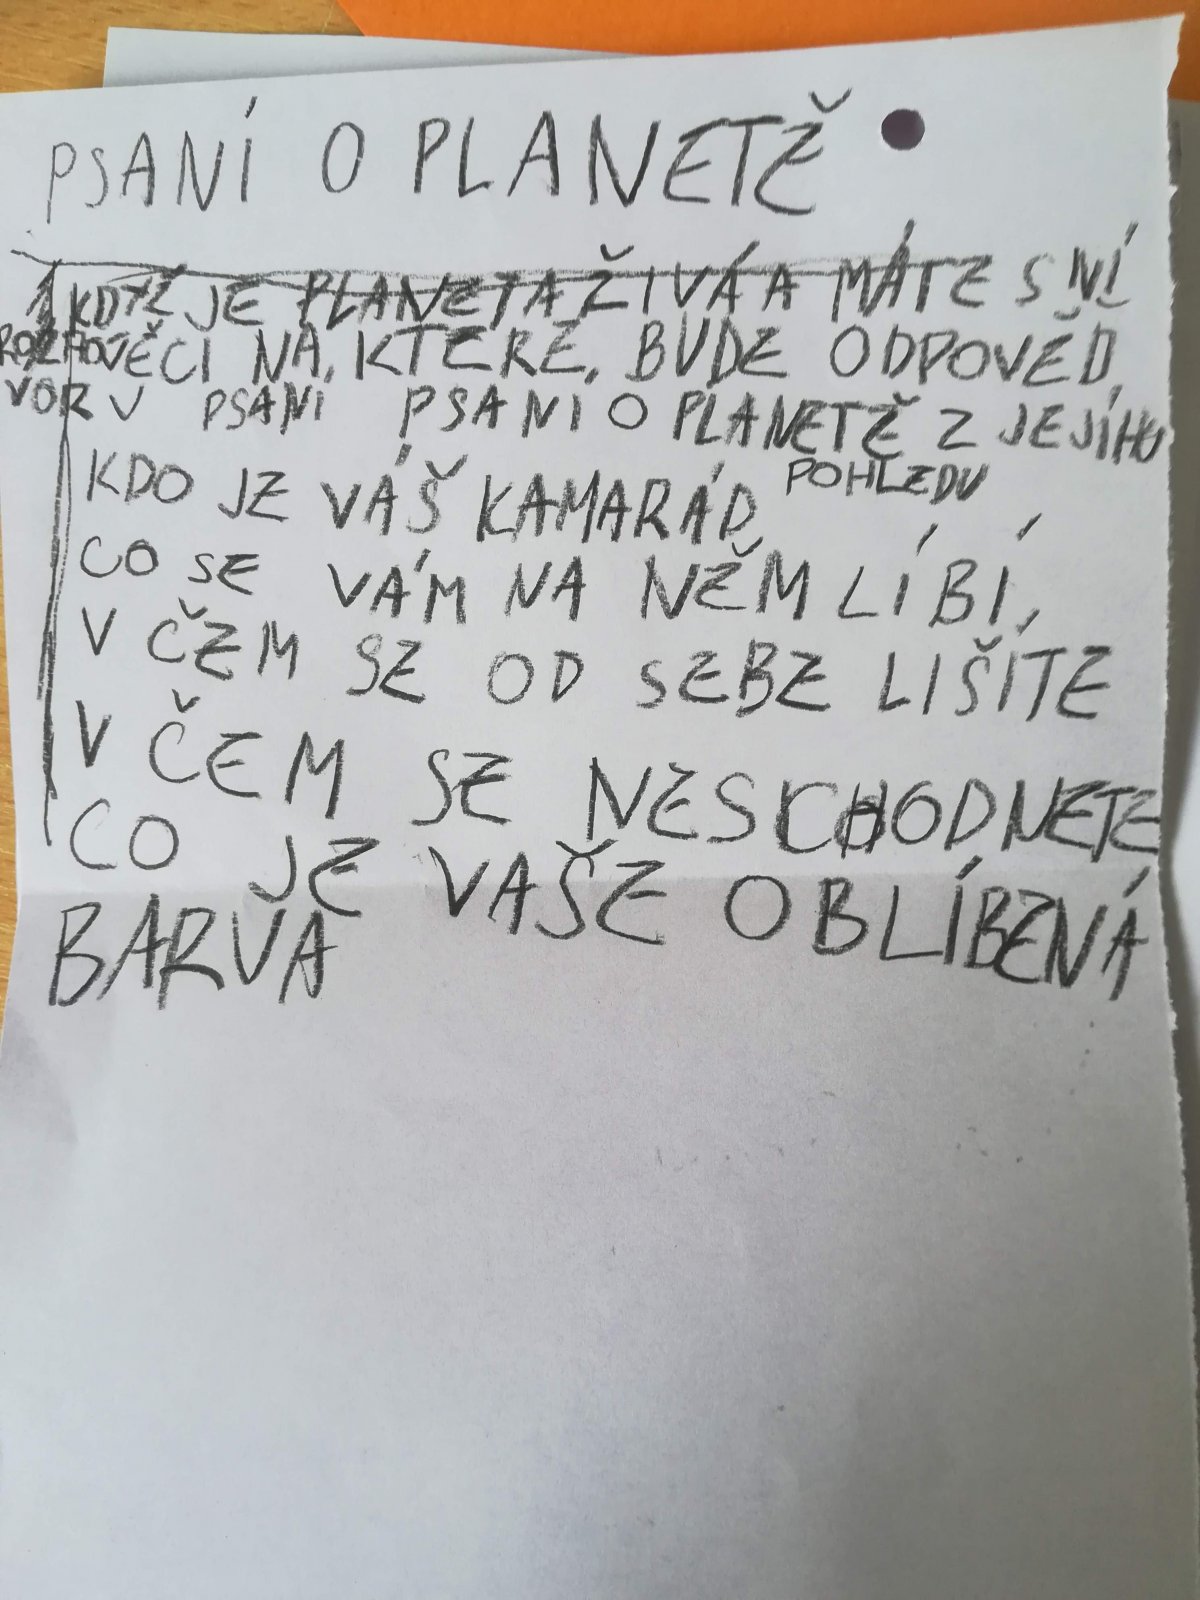 PSANÍ O PLANETĚ
KDYŽ JE PLANETA ŽIVÁ A MÁTE S NÍ
ROZHOVĚCI NA, KTERÉ, BUDE ODPOVĚD,
VOR V PSANÍ PSANÍ O PLANETĚ Z JEJÍHO
POHLEDU
KDO JE VÁŠ KAMARÁD
CO SE VÁM NA NĚM LÍBÍ,
V ČEM SE OD SEBE LIŠÍTE
V ČEM SE NESCHODNETE
CO JE VAŠE OBLÍBENÁ
BARVA